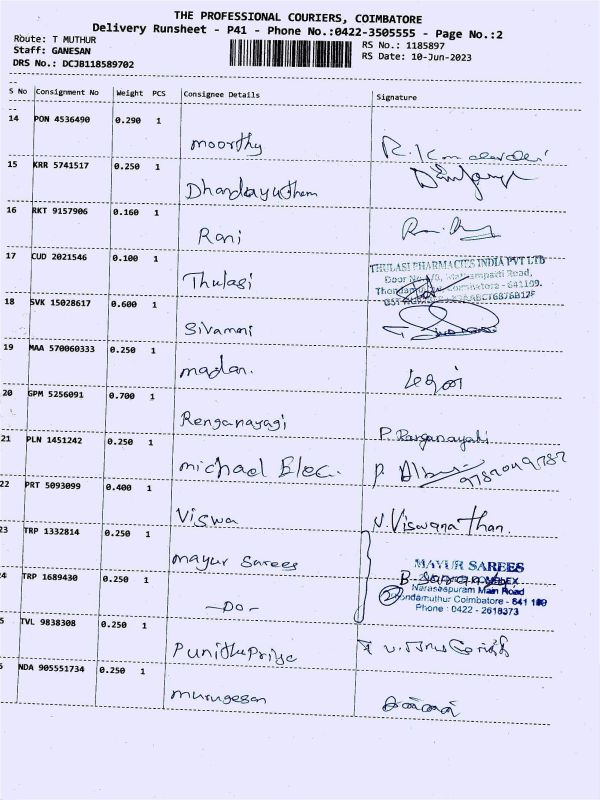 THE PROFESSIONAL COURIERS, COIMBATORE
Delivery Runsheet - P41 - Phone No.:0422-3505555 - Page No.:2
Route: T MUTHUR
RS No.: 1185897
Staff: GANESAN
RS Date: 10-Jun-2023
DRS No.: DCJB118589702
S No Consignment No Weight PCS Consignee Details Signature
14 PON 4536490 0.290 1
moorthy
15 KRR 5741517 0.250 1
Dhandayutham
16 RKT 9157906 0.160 1
Rani
17 CUD 2021546 0.100 1
THULASI PHARMACIES INDIA PVT LTD
Door No
Road,
Thulasi
Coimbatore - 641109.
18 SVK 15028617 0.600 1
Sivamani
19 MAA 570060333 0.250 1
madan.
20 GPM 5256091 0.700 1
Renganayagi P. Ranganayaki
21 PLN 1451242 0.250 1
michael Elec.
22 PRT 5093099 0.400 1
Viswa N. Viswanathan.
23 TRP 1332814 0.250 1
mayur Sarees
MAYUR SAREES
24 TRP 1689430 0.250 1
Narasaapuram Main Road
ondamuthur Coimbatore - 641 109
-DO-
Phone : 0422 - 2618373
5 TVL 9838308 0.250 1
Punithapriya
6 NDA 905551734 0.250 1
murugesan